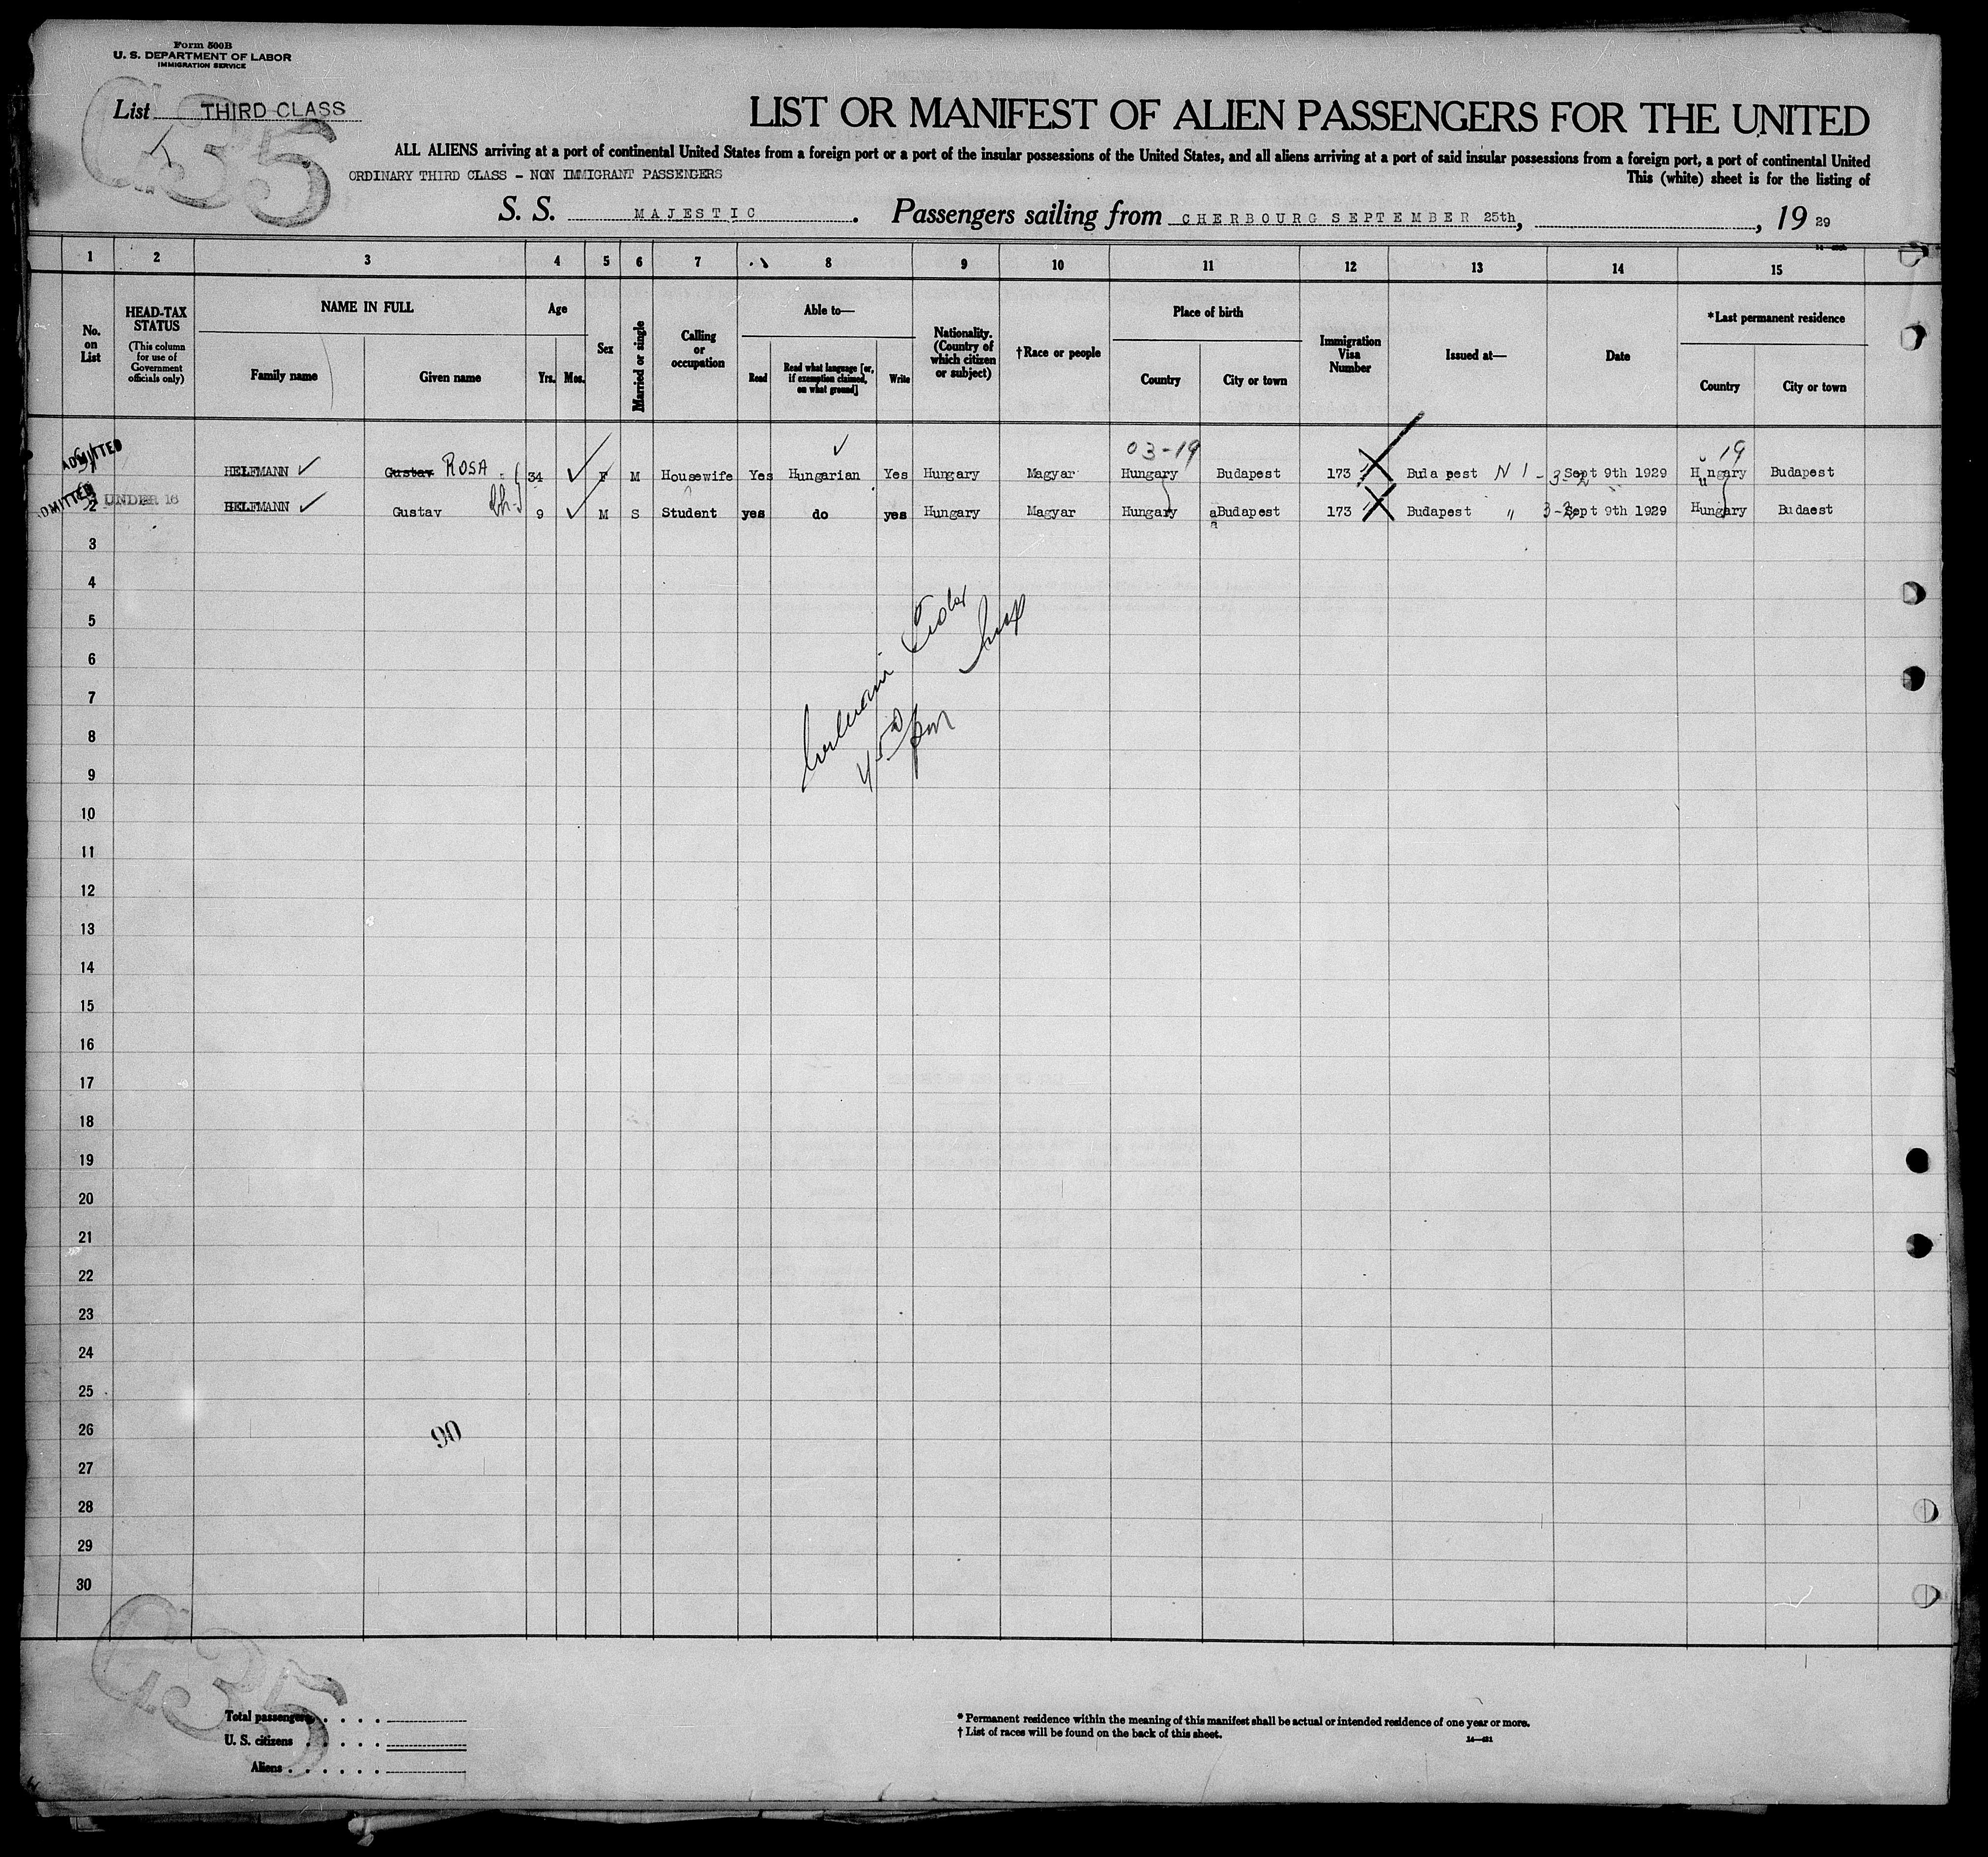 Form 500B
U. S. DEPARTMENT OF LABOR
IMMIGRATION SERVICE
List THIRD CLASS
C35
LIST OR MANIFEST OF ALIEN PASSENGERS FOR THE UNITED
ALL ALIENS arriving at a port of continental United States from a foreign port or a port of the insular possessions of the United States, and all aliens arriving at a port of said insular possessions from a foreign port, a port of continental United
ORDINARY THIRD CLASS - NON IMMIGRANT PASSENGERS
This (white) sheet is for the listing of
S. S. MAJESTIC. Passengers sailing from CHERBOURG SEPTEMBER 25th, , 19 29
1 2 3 4 5 6 7 8 9 10 11 12 13 14 15
No. on List
HEAD-TAX STATUS (This column for use of Government officials only)
NAME IN FULL
Family name
Given name
Age
Yrs. Mos.
Sex
Married or single
Calling or occupation
Able to—
Read
Read what language [or, if exemption claimed, on what ground]
Write
Nationality. (Country of which citizen or subject)
†Race or people
Place of birth
Country
City or town
Immigration Visa Number
Issued at—
Date
*Last permanent residence
Country
City or town
03-19 19
ADMITTED HELFMANN ✓ Gustav ROSA 34 ✓ F M Housewife Yes Hungarian Yes Hungary Magyar Hungary Budapest 173 Buda pest N I - 3-2 Sept 9th 1929 Hungary Budapest
ADMITTED 2 UNDER 16 HELFMANN ✓ Gustav ch- 9 ✓ M S Student yes do yes Hungary Magyar Hungary aBudapest 173 Budapest " 3-2 Sept 9th 1929 Hungary Budaest
3
4
5
6
7
8
9
10
11
12
13
14
15
16
17
18
19
20
21
22
23
24
25
26
90
27
28
29
30
C35
Total passengers . . . .
U. S. citizens . . . . .
Aliens . . . . . .
* Permanent residence within the meaning of this manifest shall be actual or intended residence of one year or more.
† List of races will be found on the back of this sheet.
14—421